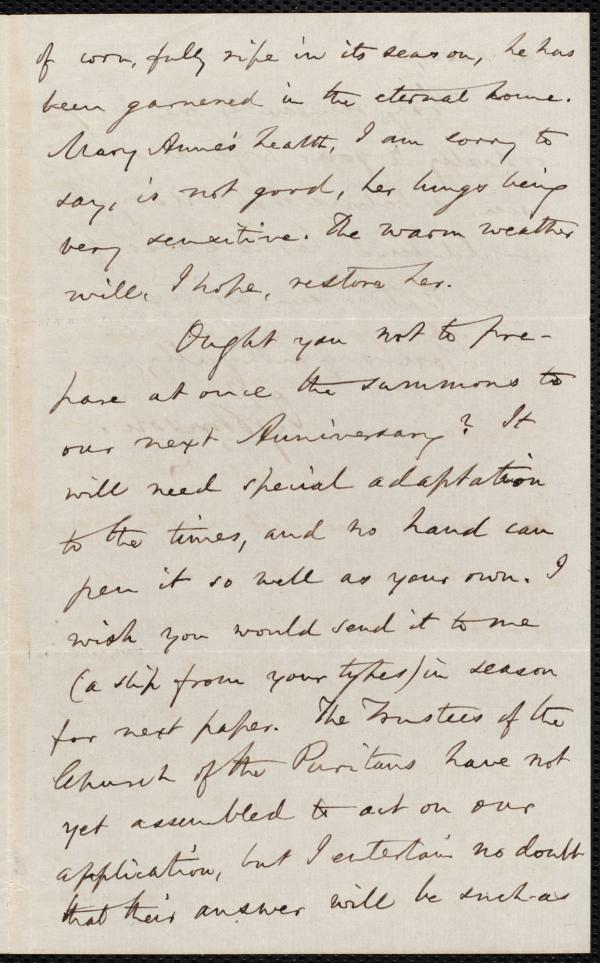 of corn, fully ripe in its season, he has
been garnered in the eternal home.
Mary Anne's health, I am sorry to
say, is not good, her lungs being
very sensitive. The warm weather
will, I hope, restore her.
Ought you not to pre-
pare at once the summons to
our next Anniversary? It
will need special adaptation
to the times, and no hand can
pen it so well as your own. I
wish you would send it to me
(a slip from your types) in season
for next paper. The Trustees of the
Church of the Puritans have not
yet assembled to act on our
application, but I entertain no doubt
that their answer will be such as